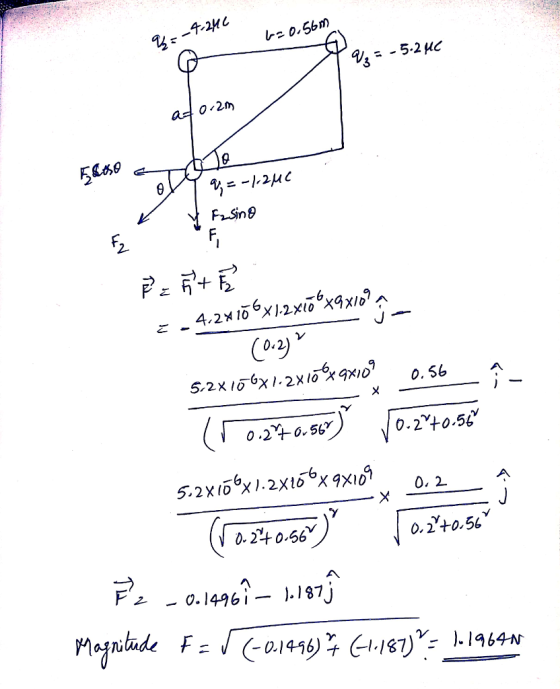 q₂ = -4.2μC
b = 0.56m
q₃ = -5.2μC
a = 0.2m
θ
F₂cosθ
θ
q₁ = -1.2μC
F₂sinθ
F₂
F₁
F⃗ = F⃗₁ + F⃗₂
= - 4.2×10⁻⁶×1.2×10⁻⁶×9×10⁹ / (0.2)² ĵ -
5.2×10⁻⁶×1.2×10⁻⁶×9×10⁹ / (√0.2²+0.56²)² × 0.56 / √0.2²+0.56² î -
5.2×10⁻⁶×1.2×10⁻⁶×9×10⁹ / (√0.2²+0.56²)² × 0.2 / √0.2²+0.56² ĵ
F⃗ = -0.1496î - 1.187ĵ
Magnitude F = √(-0.1496)² + (-1.187)² = 1.1964N